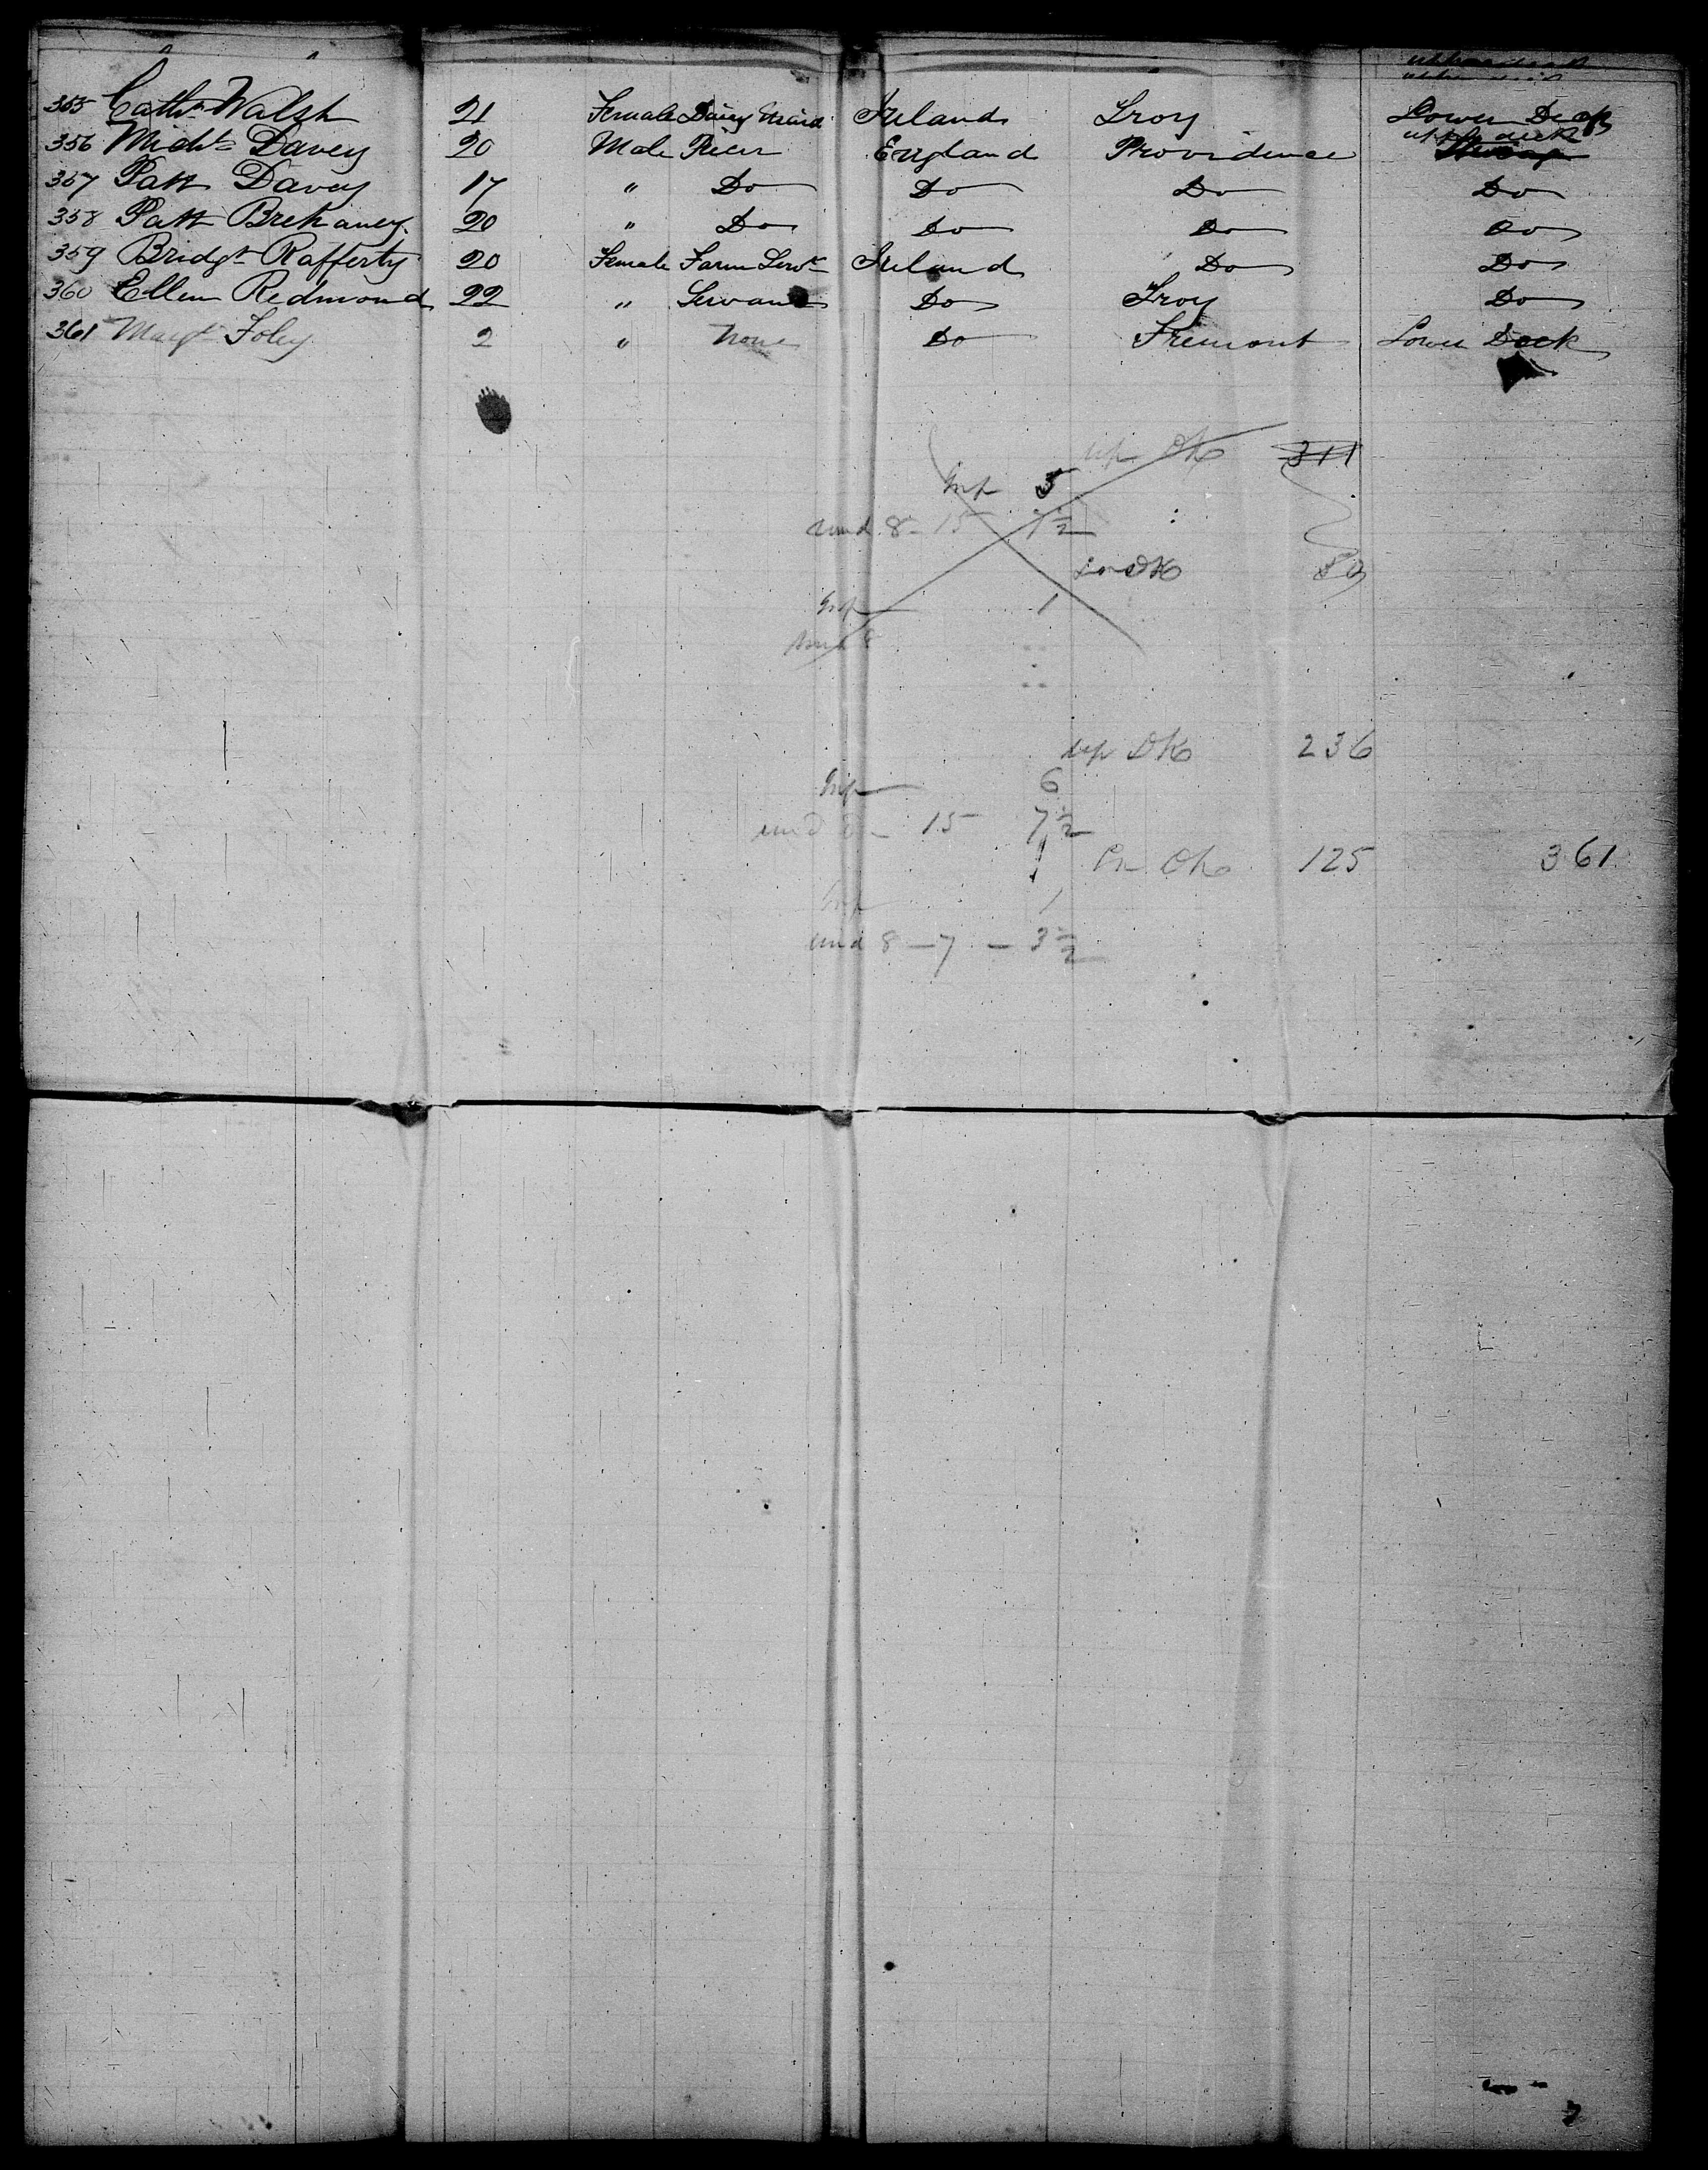 355 Cathn Walsh 21 Female Dairy Maid Ireland Troy Lower Deck
upper deck
356 Michl Davey 20 Male Piecer England Providence Steerage
357 Patk Davey 17 " Do Do Do Do
358 Patk Brehaney 20 " Do Do Do Do
359 Bridgt Rafferty 20 Female Farm Servt Ireland Do Do
360 Ellen Redmond 22 " Servant Do Troy Do
361 Margt Foley 2 " None Do Fremont Lower Deck
up DK 311
Inf 5
und 8 - 15 7½
Lr DK 50
Inf 1
und 8
up DK 236
Inf 6
und 8 - 15 7½
Lr DK 125 361
Inf 1
und 8 - 7 - 3½